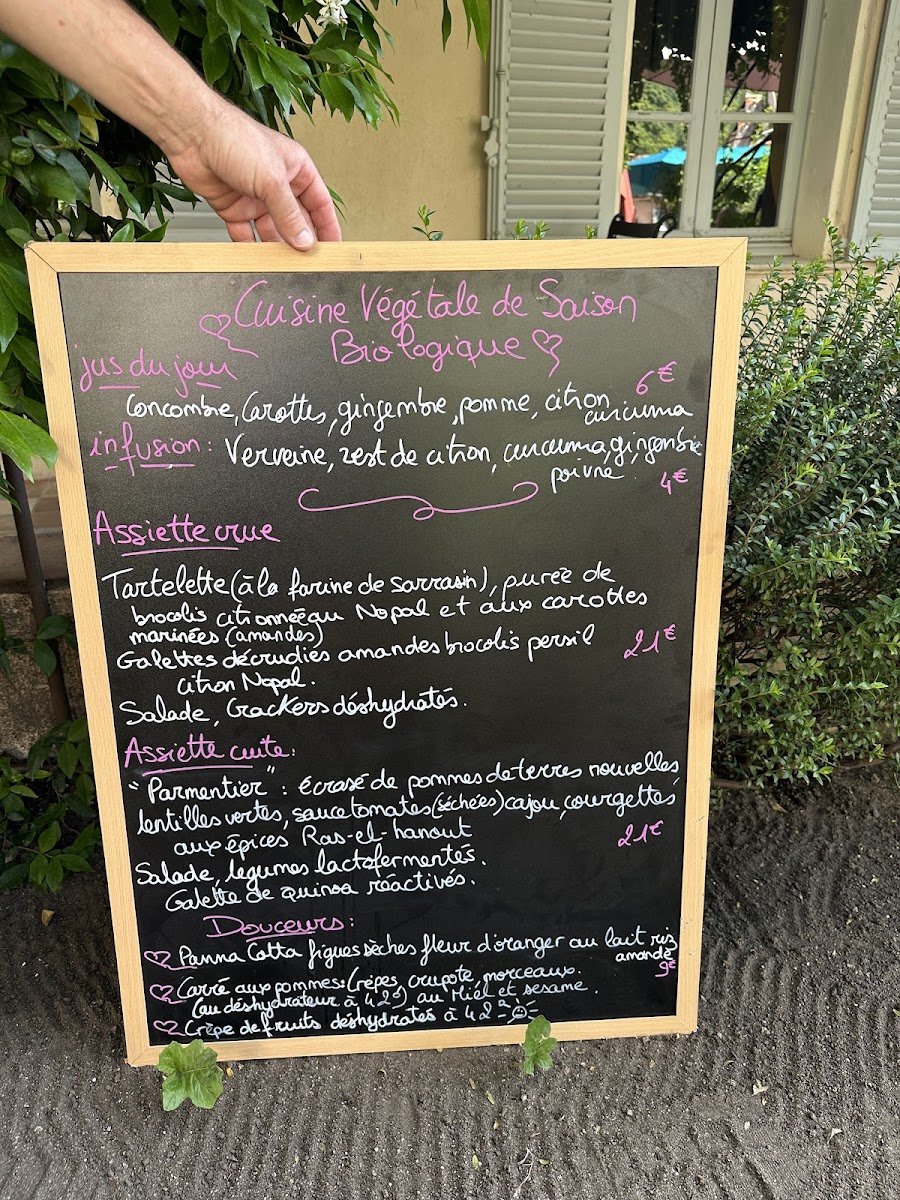 Cuisine Végétale de Saison
Biologique
jus du jour
6€
Concombre, Carottes, gingembre, pomme, citron
curcuma
infusion : Verveine, zest de citron, curcuma, gingembre
poivre.
4€
Assiette crue
Tartelette (à la farine de sarrasin), purée de
brocolis citronnée au Nopal et aux carottes
marinées (amandes)
Galettes décrudies amandes brocolis persil
21€
citron Nopal.
Salade, Crackers déshydratés.
Assiette cuite :
"Parmentier" : écrasé de pommes de terres nouvelles
lentilles vertes, sauce tomates (séchées) cajou, courgettes
aux épices Ras-el-hanout
21€
Salade, légumes lactofermentés.
Galette de quinoa réactivés.
Douceurs :
Panna Cotta figues sèches fleur d'oranger au lait ris
amande
9€
Carré aux pommes : Crêpes, morceaux.
(au déshydrateur à 42°) au Miel et sesame.
Crêpe de fruits déshydratés à 42°